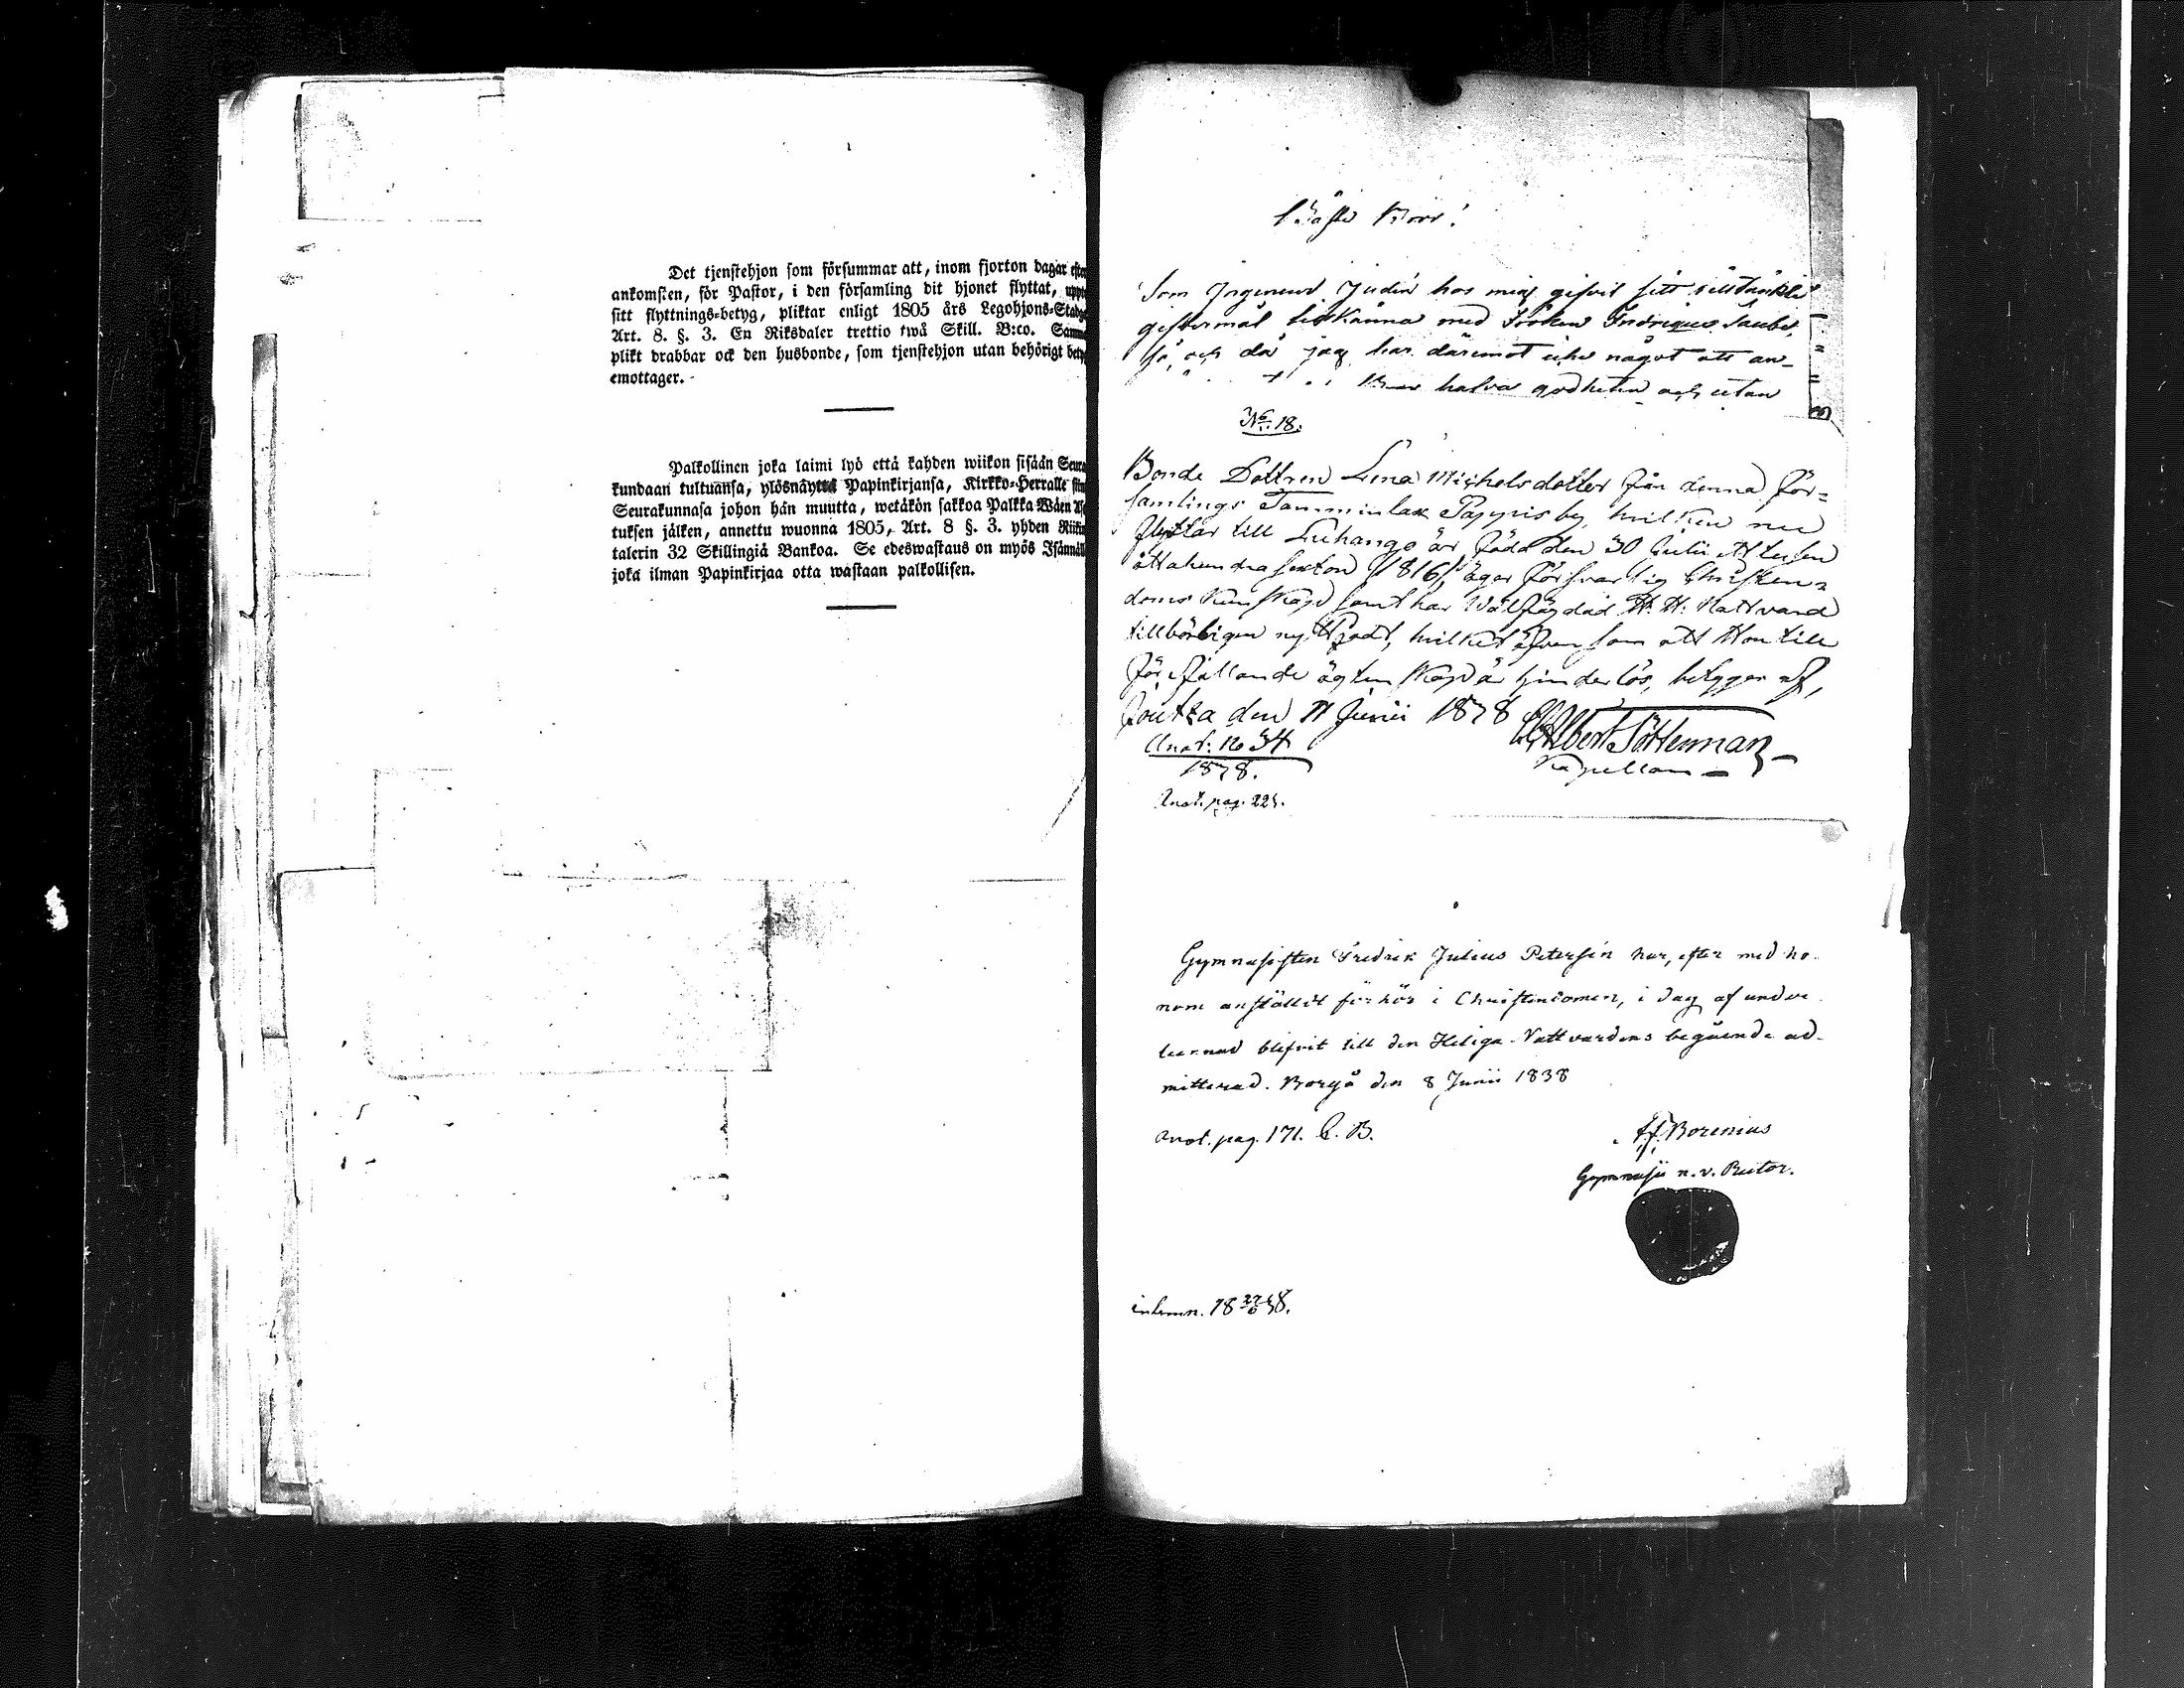 Det tjenstehjon som försummar att, inom fjorton dagar efter
ankomsten, för Pastor, i den församling dit hjonet flyttat, uppte
sitt flyttnings-betyg, pliktar enligt 1805 års Legohjons-Stadg
Art. 8. §. 3. En Riksdaler trettio twå Skill. B:co. Samm
plikt drabbar ock den husbonde, som tjenstehjon utan behörigt bety
emottager.
Palkollinen joka laimi lyö että kahden wiikon sisään Seura
kundaan tultuansa, ylösnäyttä Papinkirjansa, Kirkko-Herralle siin
Seurakunnasa johon hän muutta, wetäkön sakkoa Palkka Wäen As
tuksen jälken, annettu wuonna 1805, Art. 8 §. 3. yhden Riikin
talerin 32 Skillingiä Bankoa. Se edeswastaus on myös Isännäll
joka ilman Papinkirjaa otta wastaan palkollisen.
Bästa Bror!
Som Ingenieur Judin hos mig gifvit sitt tilltänkte
giftermål tillkänna med Fröken
så, och då jag har däremot icke något att an-
Bror halva godheten och utan
No 18.
Bonde Dottren Lena Michelsdotter från denna för=
samlings Tamminlax Pappis by, hvilken nu
flyttar till Luhango är född den 30 Julii Ettusen
åttahundra sexton /1816/, äger försvarlig Christen=
doms kunskap samt har Wälfägdad H. H. Nattvard
tillbörligen nyttjadt, hvilket äfven som att Hon till
förefallande ägtenskap är hinderlös, betygar af,
Joutza den 11 Junii 1838 Albert Sötterman
Anot: No 34 Kapellan
1838.
Anot. pag. 221.
Gymnasisten Fredrik Julius Petersén har, efter med ho-
nom anställdt förhör i Christendomen, i dag af under-
tecknad blifvit till den Heliga Nattvardens begående ad-
mitterad. Borgå den 8 Junii 1838
Anot. pag. 171. C. B. Borenius
Gymnasii n. v. Rector.
inlemn. 18 38.